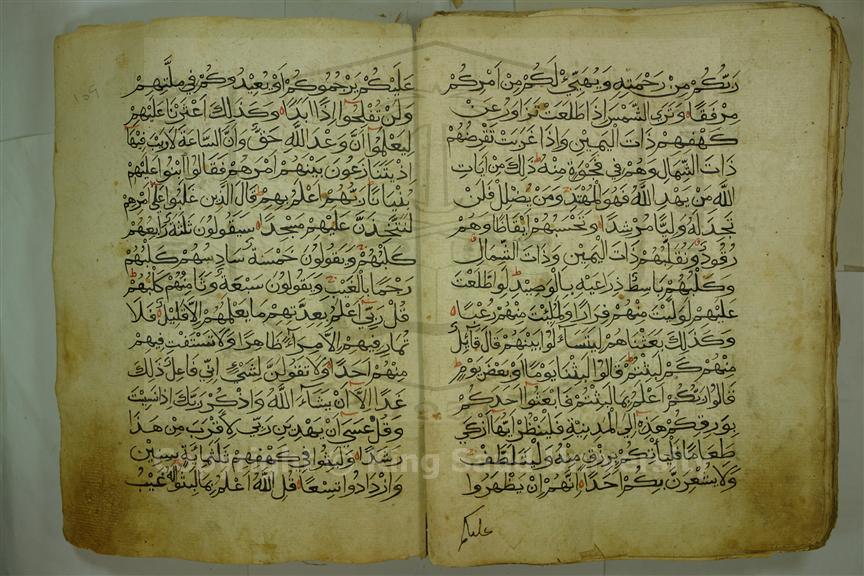 رَبُّكُمْ مِنْ رَحْمَتِهِ وَيُهَيِّئْ لَكُمْ مِنْ أَمْرِكُمْ
مِرْفَقًا وَتَرَى الشَّمْسَ إِذَا طَلَعَتْ تَزَاوَرُ عَنْ
كَهْفِهِمْ ذَاتَ الْيَمِينِ وَإِذَا غَرَبَتْ تَقْرِضُهُمْ
ذَاتَ الشِّمَالِ وَهُمْ فِي فَجْوَةٍ مِنْهُ ذَلِكَ مِنْ آيَاتِ
اللَّهِ مَنْ يَهْدِ اللَّهُ فَهُوَ الْمُهْتَدِ وَمَنْ يُضْلِلْ فَلَنْ
تَجِدَ لَهُ وَلِيًّا مُرْشِدًا وَتَحْسَبُهُمْ أَيْقَاظًا وَهُمْ
رُقُودٌ وَنُقَلِّبُهُمْ ذَاتَ الْيَمِينِ وَذَاتَ الشِّمَالِ
وَكَلْبُهُمْ بَاسِطٌ ذِرَاعَيْهِ بِالْوَصِيدِ لَوِ اطَّلَعْتَ
عَلَيْهِمْ لَوَلَّيْتَ مِنْهُمْ فِرَارًا وَلَمُلِئْتَ مِنْهُمْ رُعْبًا
وَكَذَلِكَ بَعَثْنَاهُمْ لِيَتَسَاءَلُوا بَيْنَهُمْ قَالَ قَائِلٌ
مِنْهُمْ كَمْ لَبِثْتُمْ قَالُوا لَبِثْنَا يَوْمًا أَوْ بَعْضَ يَوْمٍ
قَالُوا رَبُّكُمْ أَعْلَمُ بِمَا لَبِثْتُمْ فَابْعَثُوا أَحَدَكُمْ
بِوَرِقِكُمْ هَذِهِ إِلَى الْمَدِينَةِ فَلْيَنْظُرْ أَيُّهَا أَزْكَى
طَعَامًا فَلْيَأْتِكُمْ بِرِزْقٍ مِنْهُ وَلْيَتَلَطَّفْ
وَلَا يُشْعِرَنَّ بِكُمْ أَحَدًا إِنَّهُمْ إِنْ يَظْهَرُوا
عليكم
عَلَيْكُمْ يَرْجُمُوكُمْ أَوْ يُعِيدُوكُمْ فِي مِلَّتِهِمْ
وَلَنْ تُفْلِحُوا إِذًا أَبَدًا وَكَذَلِكَ أَعْثَرْنَا عَلَيْهِمْ
لِيَعْلَمُوا أَنَّ وَعْدَ اللَّهِ حَقٌّ وَأَنَّ السَّاعَةَ لَا رَيْبَ فِيهَا
إِذْ يَتَنَازَعُونَ بَيْنَهُمْ أَمْرَهُمْ فَقَالُوا ابْنُوا عَلَيْهِمْ
بُنْيَانًا رَبُّهُمْ أَعْلَمُ بِهِمْ قَالَ الَّذِينَ غَلَبُوا عَلَى أَمْرِهِمْ
لَنَتَّخِذَنَّ عَلَيْهِمْ مَسْجِدًا سَيَقُولُونَ ثَلَثَةٌ رَابِعُهُمْ
كَلْبُهُمْ وَيَقُولُونَ خَمْسَةٌ سَادِسُهُمْ كَلْبُهُمْ
رَجْمًا بِالْغَيْبِ وَيَقُولُونَ سَبْعَةٌ وَثَامِنُهُمْ كَلْبُهُمْ
قُلْ رَبِّي أَعْلَمُ بِعِدَّتِهِمْ مَا يَعْلَمُهُمْ إِلَّا قَلِيلٌ فَلَا
تُمَارِ فِيهِمْ إِلَّا مِرَاءً ظَاهِرًا وَلَا تَسْتَفْتِ فِيهِمْ
مِنْهُمْ أَحَدًا وَلَا تَقُولَنَّ لِشَيْءٍ إِنِّي فَاعِلٌ ذَلِكَ
غَدًا إِلَّا أَنْ يَشَاءَ اللَّهُ وَاذْكُرْ رَبَّكَ إِذَا نَسِيتَ
وَقُلْ عَسَى أَنْ يَهْدِيَنِ رَبِّي لِأَقْرَبَ مِنْ هَذَا
رَشَدًا وَلَبِثُوا فِي كَهْفِهِمْ ثَلَثَ مِائَةٍ سِنِينَ
وَازْدَادُوا تِسْعًا قُلِ اللَّهُ أَعْلَمُ بِمَا لَبِثُوا لَهُ غَيْبُ